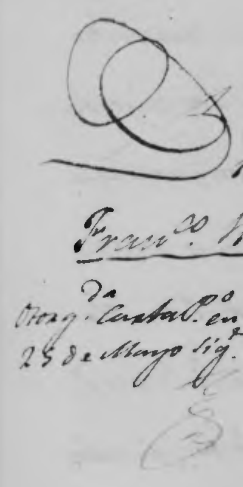 Fran.co
da
Otorg. Carta P.o en
25 de Mayo sig.te